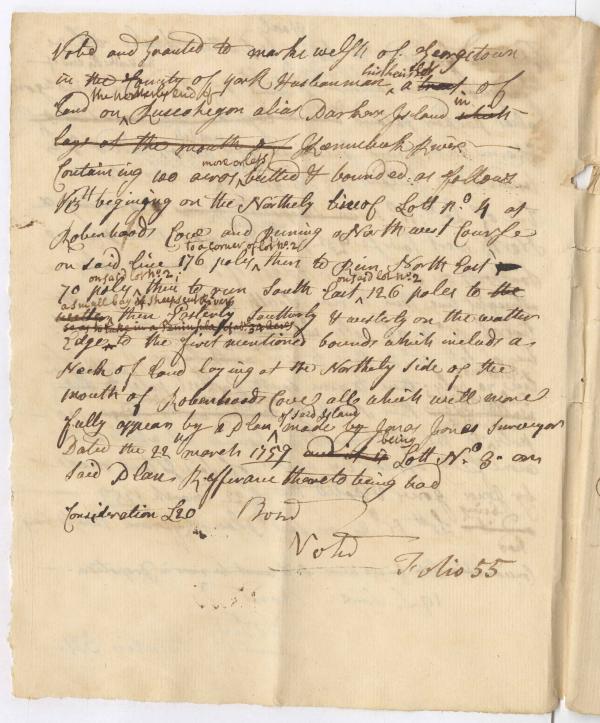 Voted and Granted to marke welsh of Georgetown
in the County of york Husbanman a tract of
the northerly end of
Land on Ruscohegon alias Darhom Island in which
lays at the mouth of Kennebeck River
more or less
Containing 100 acres butted & bounded as follows
Vizt begining on the Northely line of Lott No. 4 at
Robenhoods Cove and Runing a North west Course
to a corner of lot No. 2
on said line 176 poles then to Run North East
on said lot No. 2 on said lot No. 2
70 poles then to run South East 126 poles to the
a small bay of Sheepscutt River
then Easterly Southerly & westerly on the watter
Edge to the first mentioned bounds which includs a
Neck of Land laying at the Northely side of the
mouth of Robenhoods Cove all which will more
of said Island
fully appear by a Plan made by Jonas Jones Surveyor
being
Dated the 22th march 1759 and it is Lott No. 3 on
said Plan Refferance thereto being had
Consideration £20 Bond
Voted
Folio 55